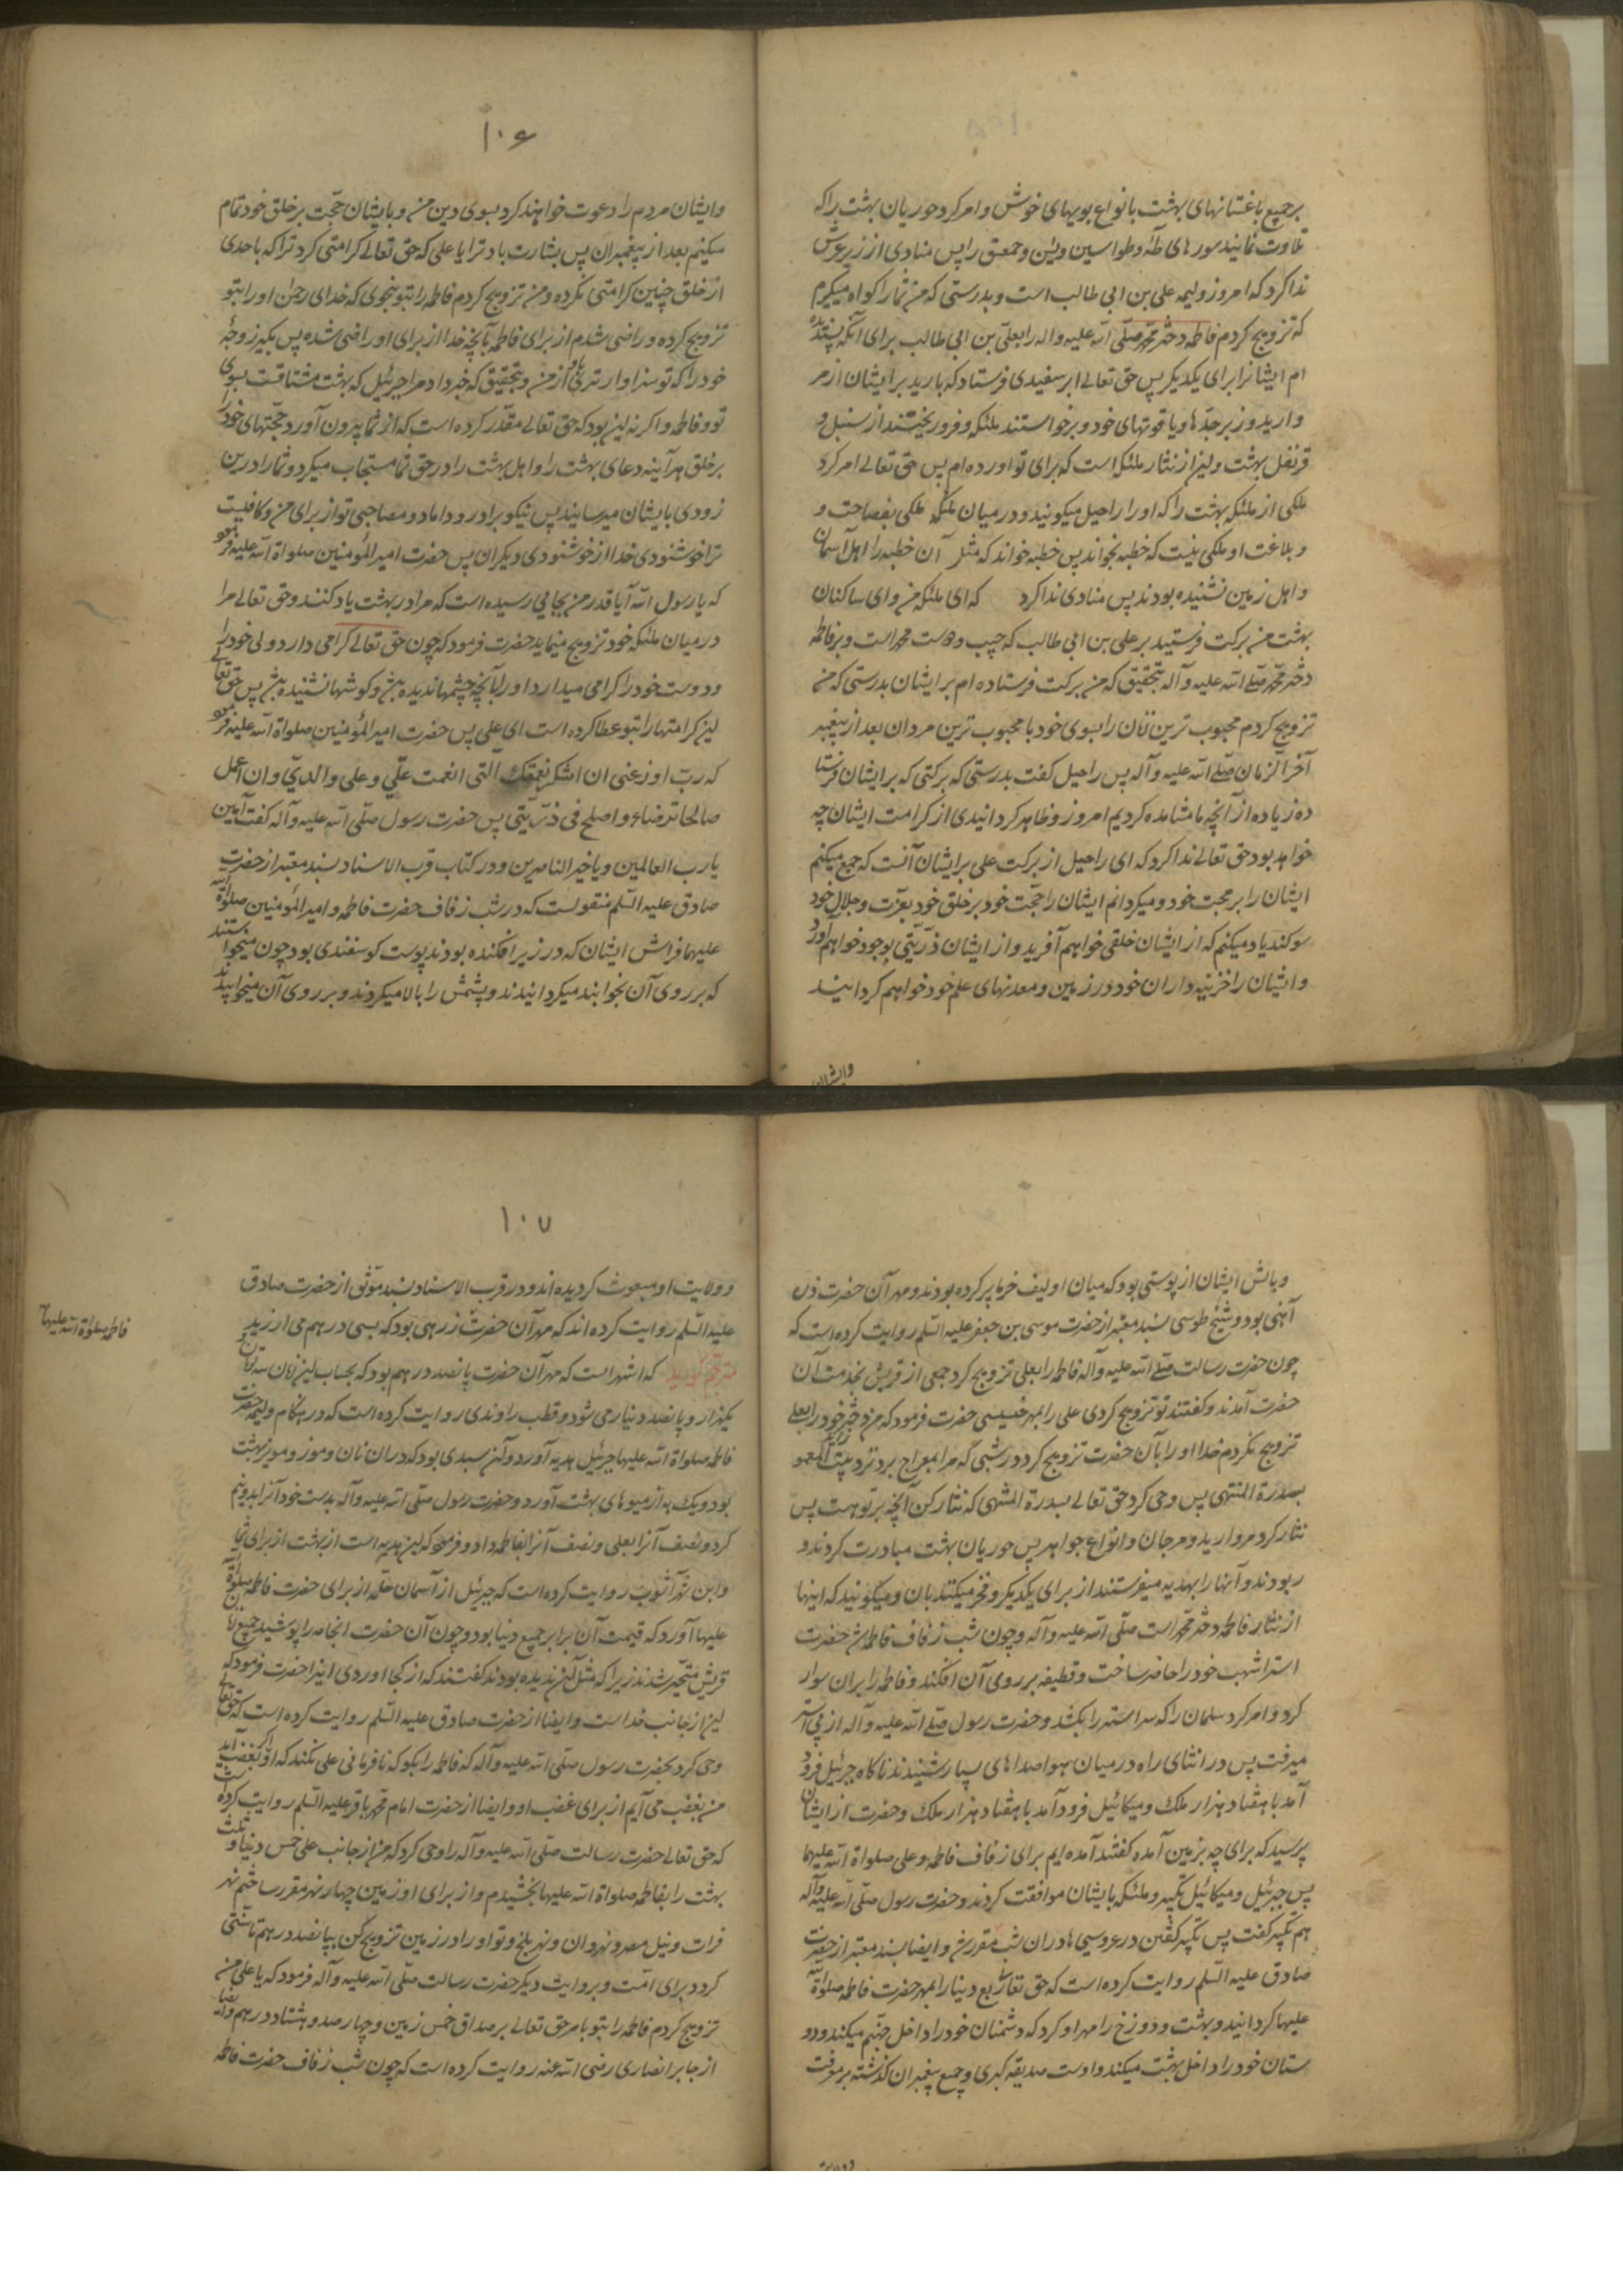 برجمیع باغستانهای بهشت بانواع بویهای خوش و امر کرد حوریان بهشت را که
تلاوت نمایند سورهای طه و طواسین و یس و حمعسق را پس منادی از زیر عرش
ندا کرد که امروز ولیمه علی بن ابی طالب است و بدرستی که من شما را کواه میکیرم
که تزویج کردم فاطمه دختر محمد صلّی الله علیه واله را بعلی بن ابی طالب برای آنکه پسندیده
ام ایشانرا برای یکدیکر پس حق تعالی ابر سفیدی فرستاد که بارید بر ایشان از مر
وارید و زبرجدها و یاقوتهای خود و برخواستند ملئکه و فرو ریختند از سنبل و
قرنفل بهشت و این از نثار ملئکه است که برای تو اورده ام پس حق تعالی امر کرد
ملکی از ملئکه بهشت را که او را راحیل میکویند و در میان ملئکه ملکی بفصاحت و
و بلاغت او ملکی نیست که خطبه بخواند پس خطبه خواند که مثل آن خطبه را اهل آسمان
و اهل زمین نشنیده بودند پس منادی ندا کرد که ای ملئکه من و ای ساکنان
بهشت من برکت فرستید بر علی بن ابی طالب که حبیب و دوست محمد است و بر فاطمه
دختر محمد صلّی الله علیه و آله بتحقیق که من برکت فرستاده ام بر ایشان بدرستی که من
تزویج کردم محبوب ترین زنان را بسوی خود با محبوب ترین مردان بعد از پیغمبر
آخر الزمان صلّی الله علیه و آله پس راحیل کفت بدرستی که برکتی که بر ایشان فرستا
ده زیاده از آنچه ما مشاهده کردیم امروز و ظاهر کردانیدی از کرامت ایشان چه
خواهد بود حق تعالی ندا کرد که ای راحیل از برکت علی بر ایشان آنست که جمع میکنم
ایشان را بر محبت خود و میکردانم ایشان را حجت خود بر خلق خود بعزت و جلال خود
سوکند یاد میکنم که از ایشان خلقی خواهم آفرید و از ایشان ذرّیتی بوجود خواهم آورد
و ایشان را خزینه داران خود در زمین و معدنهای علم خود خواهم کردانید
وایشان
۱۰۶
وایشان مردم را دعوت خواهند کرد بسوی دین من و بایشان حجّت بر خلق خود تمام
میکنم بعد از پیغمبران پس بشارت باد ترا یا علی که حق تعالی کرامتی کرد ترا که باحدی
از خلق چنین کرامتی نکرده و من تزویج کردم فاطمه را بتو بنحوی که خدای رحمن او را بتو
تزویج کرده و راضی شدم از برای فاطمه بآنچه خدا از برای او راضی شده پس بکیر زوجهٔ
خود را که تو سزاوار تری باو از من و بتحقیق که خبر داد مرا جبرئیل که بهشت مشتاقست بسوی
تو و فاطمه و اکر نه این بود که حق تعالی مقدّر کرده است که از شما بیرون آورد حجّتهای خود را
بر خلق هرآینه دعای بهشت را و اهل بهشت را در حق شما مستجاب میکرد و شما را درین
زودی بایشان میرسانید پس نیکو برادر و داماد و مصاحبی تو از برای من و کافیست
ترا خوشنودی خدا از خوشنودی دیکران پس حضرت امیر المؤمنین صلواة الله علیه فرمود
که یا رسول الله آیا قدر من بجایی رسیده است که مرا در بهشت یاد کنند و حق تعالی مرا
در میان ملئکه خود تزویج مینماید حضرت فرمود که چون حق تعالی کرامی دارد ولی خود را
و دوست خود را کرامی میدارد او را بآنچه چشمها ندیده باشد و کوشها نشنیده باشد پس حق تعالی
این کرامتها را بتو عطا کرده است ای علی پس حضرت امیر المؤمنین صلواة الله علیه فرمود
که رب اوزعنی ان اشکر نعمتك التی انعمت علّی و علی والدیّ وان اعمل
صالحا ترضاه و اصلح فی ذرّیّتی پس حضرت رسول صلّی الله علیه و آله کفت آمین
یا رب العالمین و یا خیر الناصرین و در کتاب قرب الاسناد بسند معتبر از حضرت
صادق علیه السّلم منقولست که در شب زفاف حضرت فاطمه و امیر المؤمنین صلواة الله
علیهما فراش ایشان که در زیر افکنده بودند پوست کوسفندی بود چون میخواستند
که بر روی آن بخوابند میکردانیدند و پشمش را بالا میکردند و بر روی آن میخوابیدند
و بالش ایشان از پوستی بود که میان او لیف خرما پر کرده بودند و مهر آن حضرت زن
آهنی بود و شیخ طوسی بسند معتبر از حضرت موسی بن جعفر علیه السّلم روایت کرده است که
چون حضرت رسالت صلّی الله علیه و آله فاطمه را بعلی تزویج کرد جمعی از قریش بخدمت آن
حضرت آمدند و کفتند تو تزویج کردی علی را بمهر خسیسی حضرت فرمود که من دختر خود را بعلی
تزویج نکردم خدا او را بآن حضرت تزویج کرد در شبی که مرا بمعراج برد نزد بیت المعمور
بسدرة المنتهی پس وحی کرد حق تعالی بسدرة المنتهی که نثار کن آنچه بر تو هست پس
نثار کرد مروارید و مرجان و انواع جواهر پس حوریان بهشت مبادرت کردند و
ربودند و آنها را بهدیه میفرستند از برای یکدیکر و فخر میکنند بان و میکویند که اینها
از نثار فاطمه دختر محمد است صلّی الله علیه و آله و چون شب زفاف فاطمه شد حضرت
استر اشهب خود را حاضر ساخت و قطیفه بر روی آن افکند و فاطمه را بران سوار
کرد و امر کرد سلمان را که سر استر را بکشد و حضرت رسول صلّی الله علیه و آله از پی استر
میرفت پس در اثنای راه در میان هوا صداهای بسیار شنیدند ناکاه جبرئیل فرود
آمد با هفتاد هزار ملك و میکائیل فرود آمد با هفتاد هزار ملك و حضرت از ایشان
پرسید که برای چه بزمین آمده کفتند آمده ایم برای زفاف فاطمه و علی صلواة الله علیهما
پس جبرئیل و میکائیل تکبیر و ملئکه بایشان موافقت کردند و حضرت رسول صلّی الله علیه و آله
هم تکبیر کفت پس تکبیر کفتن در عروسیها در ان شب مقرر شد و ایضا بسند معتبر از حضرت
صادق علیه السّلم روایت کرده است که حق تعالی ربع دنیا را بمهر حضرت فاطمه صلواة الله
علیها کردانید و بهشت و دوزخ را مهر او کرد که دشمنان خود را داخل جهنّم میکند و دو
ستان خود را داخل بهشت میکند و اوست صدیقه کبری و جمیع پیغمبران کذشته بر معرفت
و ولایت
۱۰۷
و ولایت او مبعوث کردیده اند و در قرب الاسناد بسند موّثق از حضرت صادق
علیه السّلم روایت کرده اند که مهر آن حضرت زرهی بود که بسی درهم می ارزید
مترجم کوید که اشهر است که مهر آن حضرت پانصد درهم بود که بحساب این زمان سه تومان و
یکهزار و پانصد دینار می شود و قطب راوندی روایت کرده است که در هنکام ولیمه حضرت
فاطمه صلواة الله علیها جبرئیل هدیه آورد و آن سبدی بود که دران نان و موز و مویز بهشت
بود و یک به از میوهای بهشت آورد و حضرت رسول صلّی الله علیه و آله بدست خود آنرا بدونیم
کرد و نصف آنرا بعلی و نصف آنرا بفاطمه داد و فرمود که این هدیه است از بهشت از برای شما
و ابن شهر آشوب روایت کرده است که جبرئیل از آسمان حلّه از برای حضرت فاطمه صلواة الله
علیها آورد که قیمت آن برابر جمیع دنیا بود و چون آن حضرت انجامه را پوشید جمیع زنان
قریش متحیّر شدند زیرا که مثل آن ندیده بودند کفتند که از کجا اوردی اینرا حضرت فرمود که
این از جانب خداست و ایضا از حضرت صادق علیه السّلم روایت کرده است که حق تعالی
وحی کرد بحضرت رسول صلّی الله علیه و آله که فاطمه را بکو که نافرمانی علی نکند که اکر او بغضب آید
من بغضب می آیم از برای غضب او و ایضا از حضرت امام محمد باقر علیه السّلم روایت کرده است
که حق تعالی حضرت رسالت صلّی الله علیه و آله را وحی کرد که من از جانب علی خمس دنیا و ثلث
بهشت را بفاطمه صلواة الله علیها بخشیدم و از برای او در زمین چهار نهر مقرر ساختم نهر
فرات و نیل مصر و نهروان و نهر بلخ و تو او را در زمین تزویج کن بپانصد درهم تا سنّتی
کردد برای امّت و بروایت دیکر حضرت رسالت صلّی الله علیه و آله فرمود که یا علی من
تزویج کردم فاطمه را بتو بامر حق تعالی بر صداق خمس زمین و چهار صد و هشتاد درهم و ایضا
از جابر انصاری رضی الله عنه روایت کرده است که چون شب زفاف حضرت فاطمه
فاطمه صلواة الله علیها